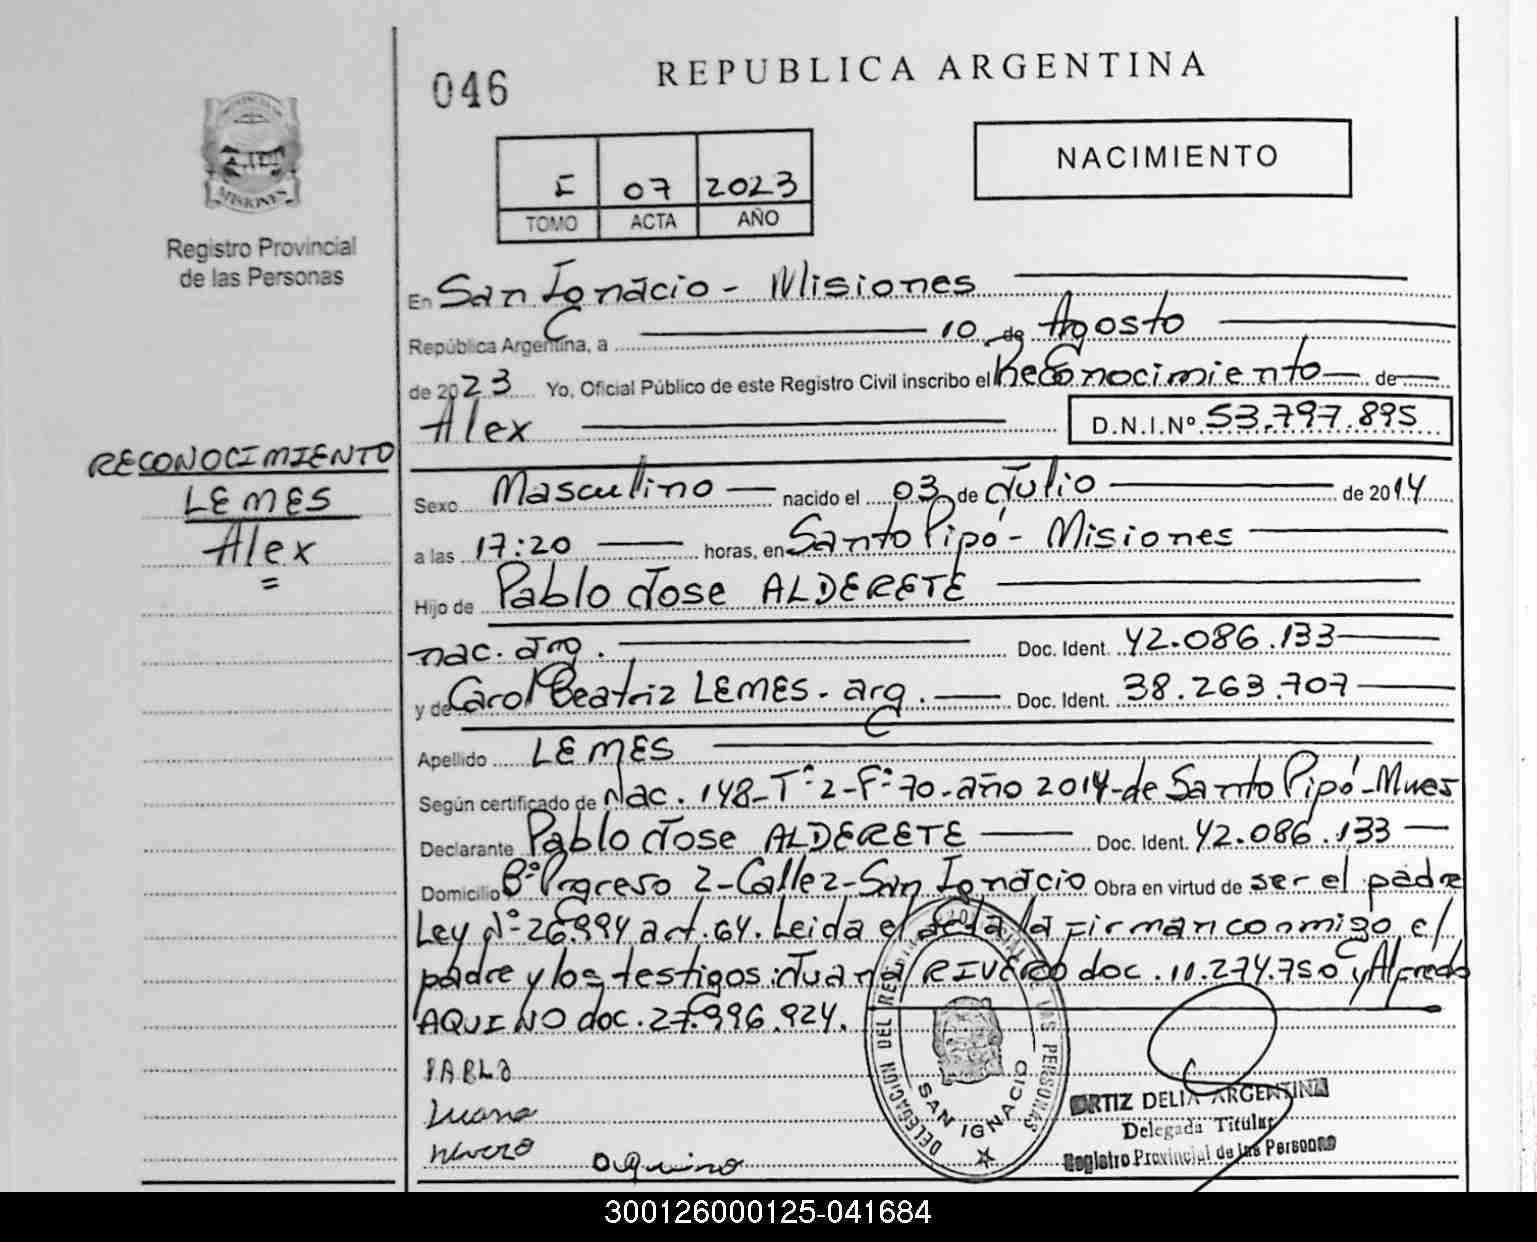 046
REPUBLICA ARGENTINA
NACIMIENTO
I 07 2023
TOMO ACTA AÑO
MISIONES
Registro Provincial
de las Personas
En San Ignacio - Misiones
República Argentina, a 10 de Agosto
de 2023 Yo, Oficial Público de este Registro Civil inscribo el Reconocimiento de
Alex D.N.I.Nº 53.797.895
RECONOCIMIENTO
LEMES
Alex
Sexo Masculino nacido el 03 de Julio de 2014
a las 17:20 horas, en Santo Pipó - Misiones
Hijo de Pablo Jose ALDERETE
nac. arg. Doc. Ident. 42.086.133
y de Carol Beatriz LEMES - arg. Doc. Ident. 38.263.707
Apellido LEMES
Según certificado de Nac. 148-Tº2-Fº70-año 2014-de Santo Pipó-Mnes
Declarante Pablo Jose ALDERETE Doc. Ident. 42.086.133
Domicilio Bº Progreso 2-Calle 2-San Ignacio Obra en virtud de ser el padre
Ley Nº 26.994 art. 64. Leida el acta la firman conmigo el
padre y los testigos: Juana RIVERO doc. 11.274.750 y Alfredo
AQUINO doc. 27.996.924.
PABLO
Juana
Rivero Aquino
DELEGACIÓN DEL REGISTRO PROVINCIAL DE LAS PERSONAS
SAN IGNACIO
ORTIZ DELIA ARGENTINA
Delegada Titular
Registro Provincial de las Personas
300126000125-041684